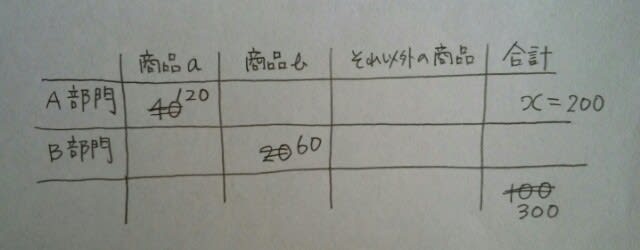 商品a 商品b それ以外の商品 合計
A部門 40 120 x=200
B部門 20 60
100
300